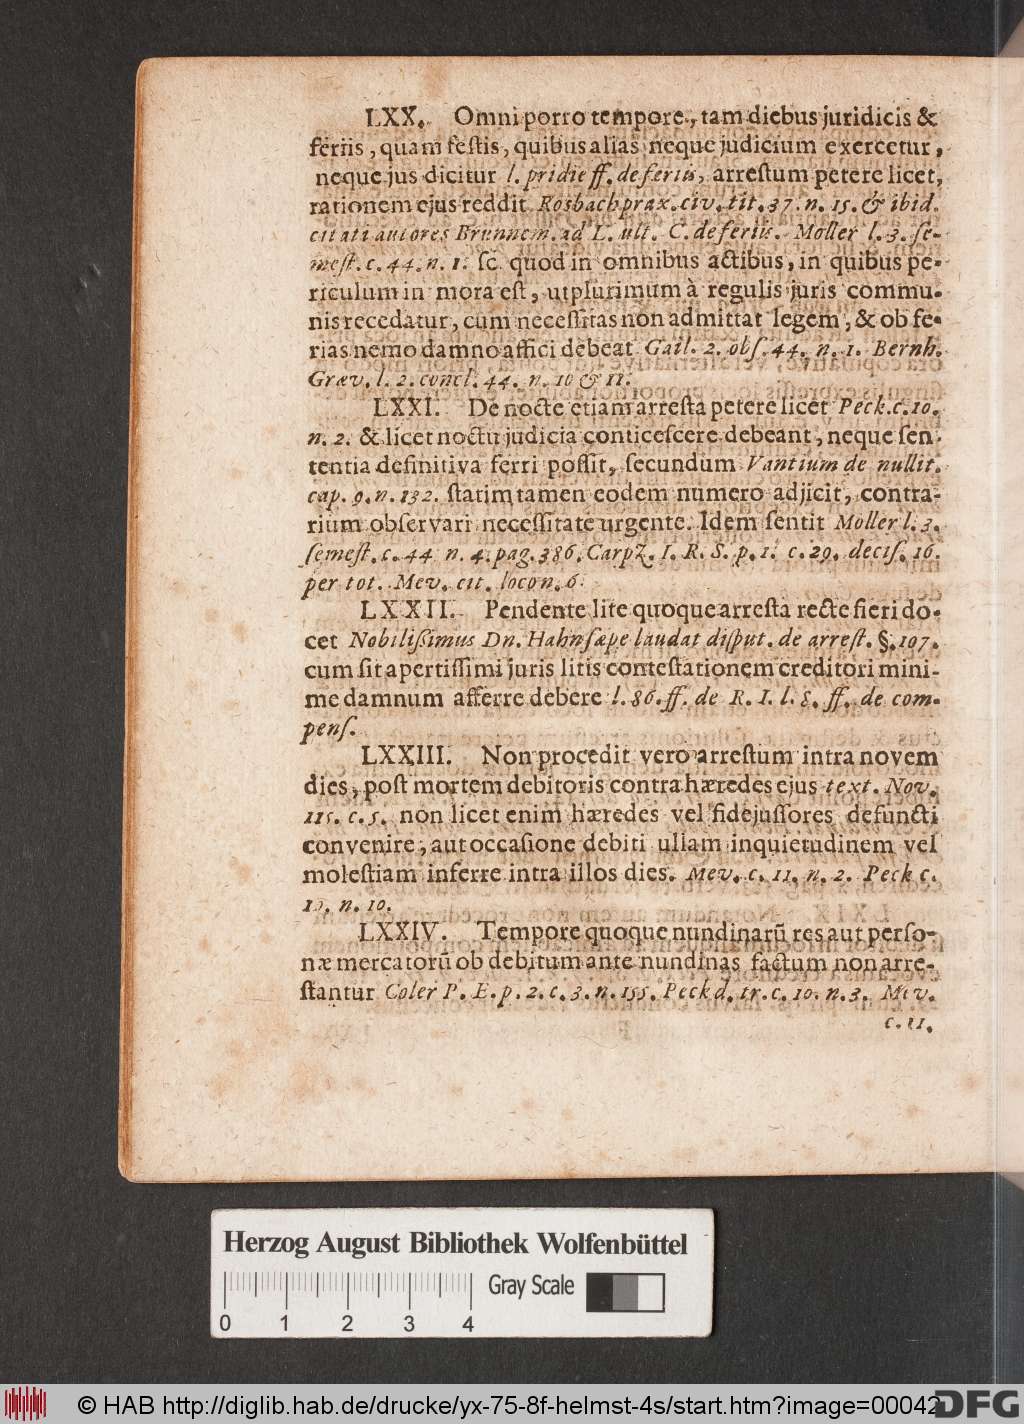 LXX. Omni porro tempore, tam diebus juridicis &
feriis, quam festis, quibus alias neque judicium exercetur,
neque jus dicitur l. pridie ff. de feriis, arrestum petere licet,
rationem ejus reddit Rosbach prax. civ. tit. 37. n. 15. & ibid.
citati autores Brunnem. ad L. ult. C. de feriis. Moller l. 3. se-
mest. c. 44. n. 1. sc. quod in omnibus actibus, in quibus pe-
riculum in mora est, utplurimum à regulis juris commu-
nis recedatur, cum necessitas non admittat legem, & ob fe-
rias nemo damno affici debeat Gail. 2. obs. 44. n. 1. Bernh.
Græv. l. 2. concl. 44. n. 10 & 11.
LXXI. De nocte etiam arresta petere licet Peck. c. 10.
n. 2. & licet noctu judicia conticescere debeant, neque sen-
tentia definitiva ferri possit, secundum Vantium de nullit.
cap. 9. n. 132. statim tamen eodem numero adjicit, contra-
rium observari necessitate urgente. Idem sentit Moller l. 3.
semest. c. 44 n. 4. pag. 386. Carpz. I. R. S. p. 1. c. 29. decis. 16.
per tot. Mev. cit. loco n. 6.
LXXII. Pendente lite quoque arresta recte fieri do-
cet Nobilissimus Dn. Hahn sæpe laudat disput. de arrest. §. 107.
cum sit apertissimi juris litis contestationem creditori mini-
me damnum afferre debere l. 86. ff. de R. I. l. 8. ff. de com-
pens.
LXXIII. Non procedit vero arrestum intra novem
dies, post mortem debitoris contra hæredes ejus text. Nov.
115. c. 5. non licet enim hæredes vel fidejussores defuncti
convenire, aut occasione debiti ullam inquietudinem vel
molestiam inferre intra illos dies. Mev. c. 11. n. 2. Peck c.
10. n. 10.
LXXIV. Tempore quoque nundinarū res aut perso-
næ mercatorū ob debitum ante nundinas factum non arre-
stantur Coler P. E. p. 2. c. 3. n. 155. Peck d. tr. c. 10. n. 3. Mev.
c. 11.
Herzog August Bibliothek Wolfenbüttel
Gray Scale
0 1 2 3 4
© HAB http://diglib.hab.de/drucke/yx-75-8f-helmst-4s/start.htm?image=00042
DFG